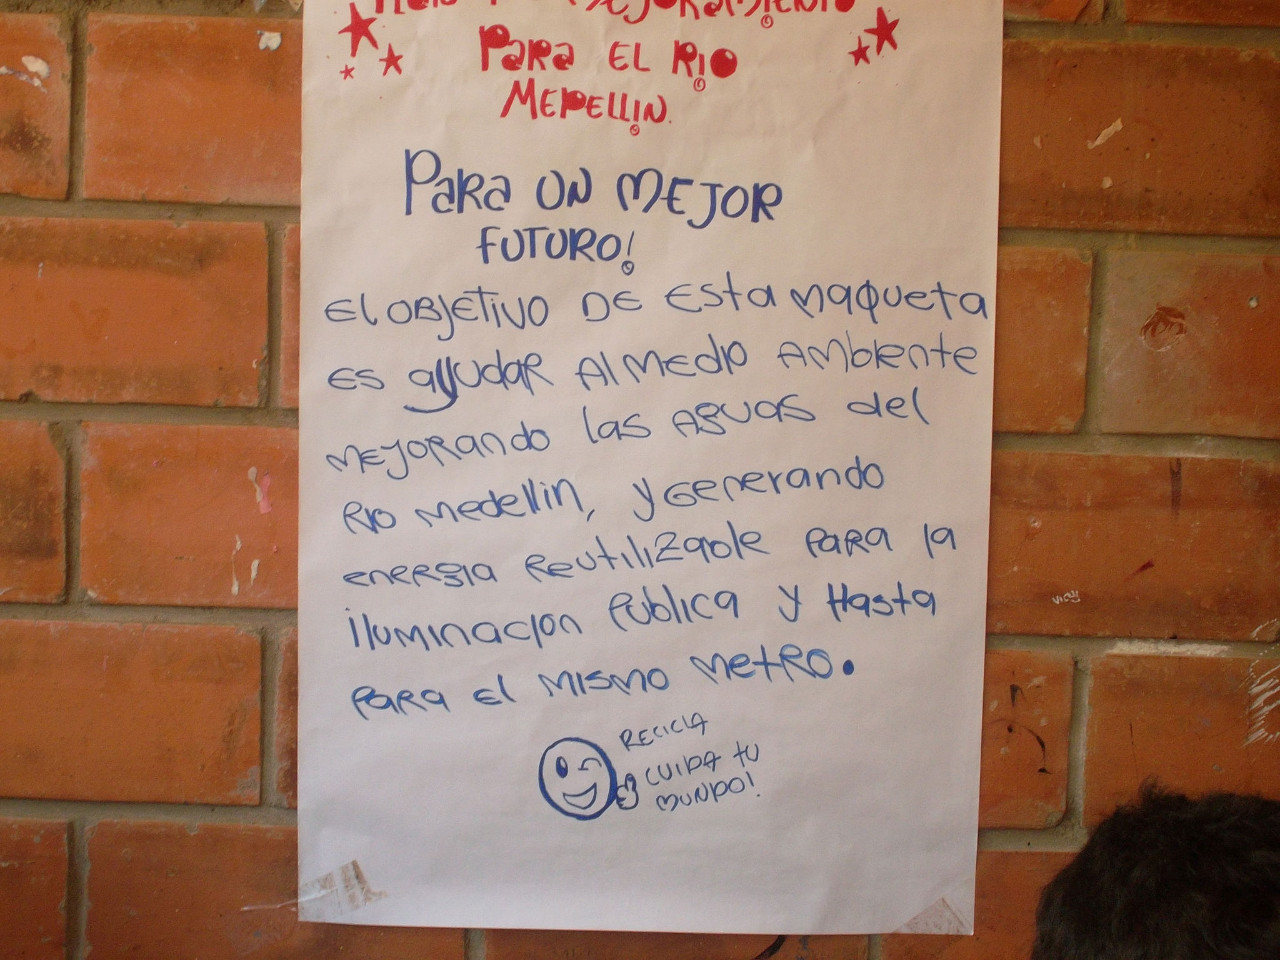 MEJORAMIENTO
PARA EL RIO
MEDELLIN.
PARA UN MEJOR
FUTURO!
El OBJETIVO DE Esta MaQueta
ES ayudar Al MEDIO AMBIENTE
MEJORANDO las AGUAS del
RIO Medellin, y Generando
energia Reutilizable para la
iluminacion Publica y Hasta
para El mismo METRO.
RECICLA
CUIDA TU
MUNDO!